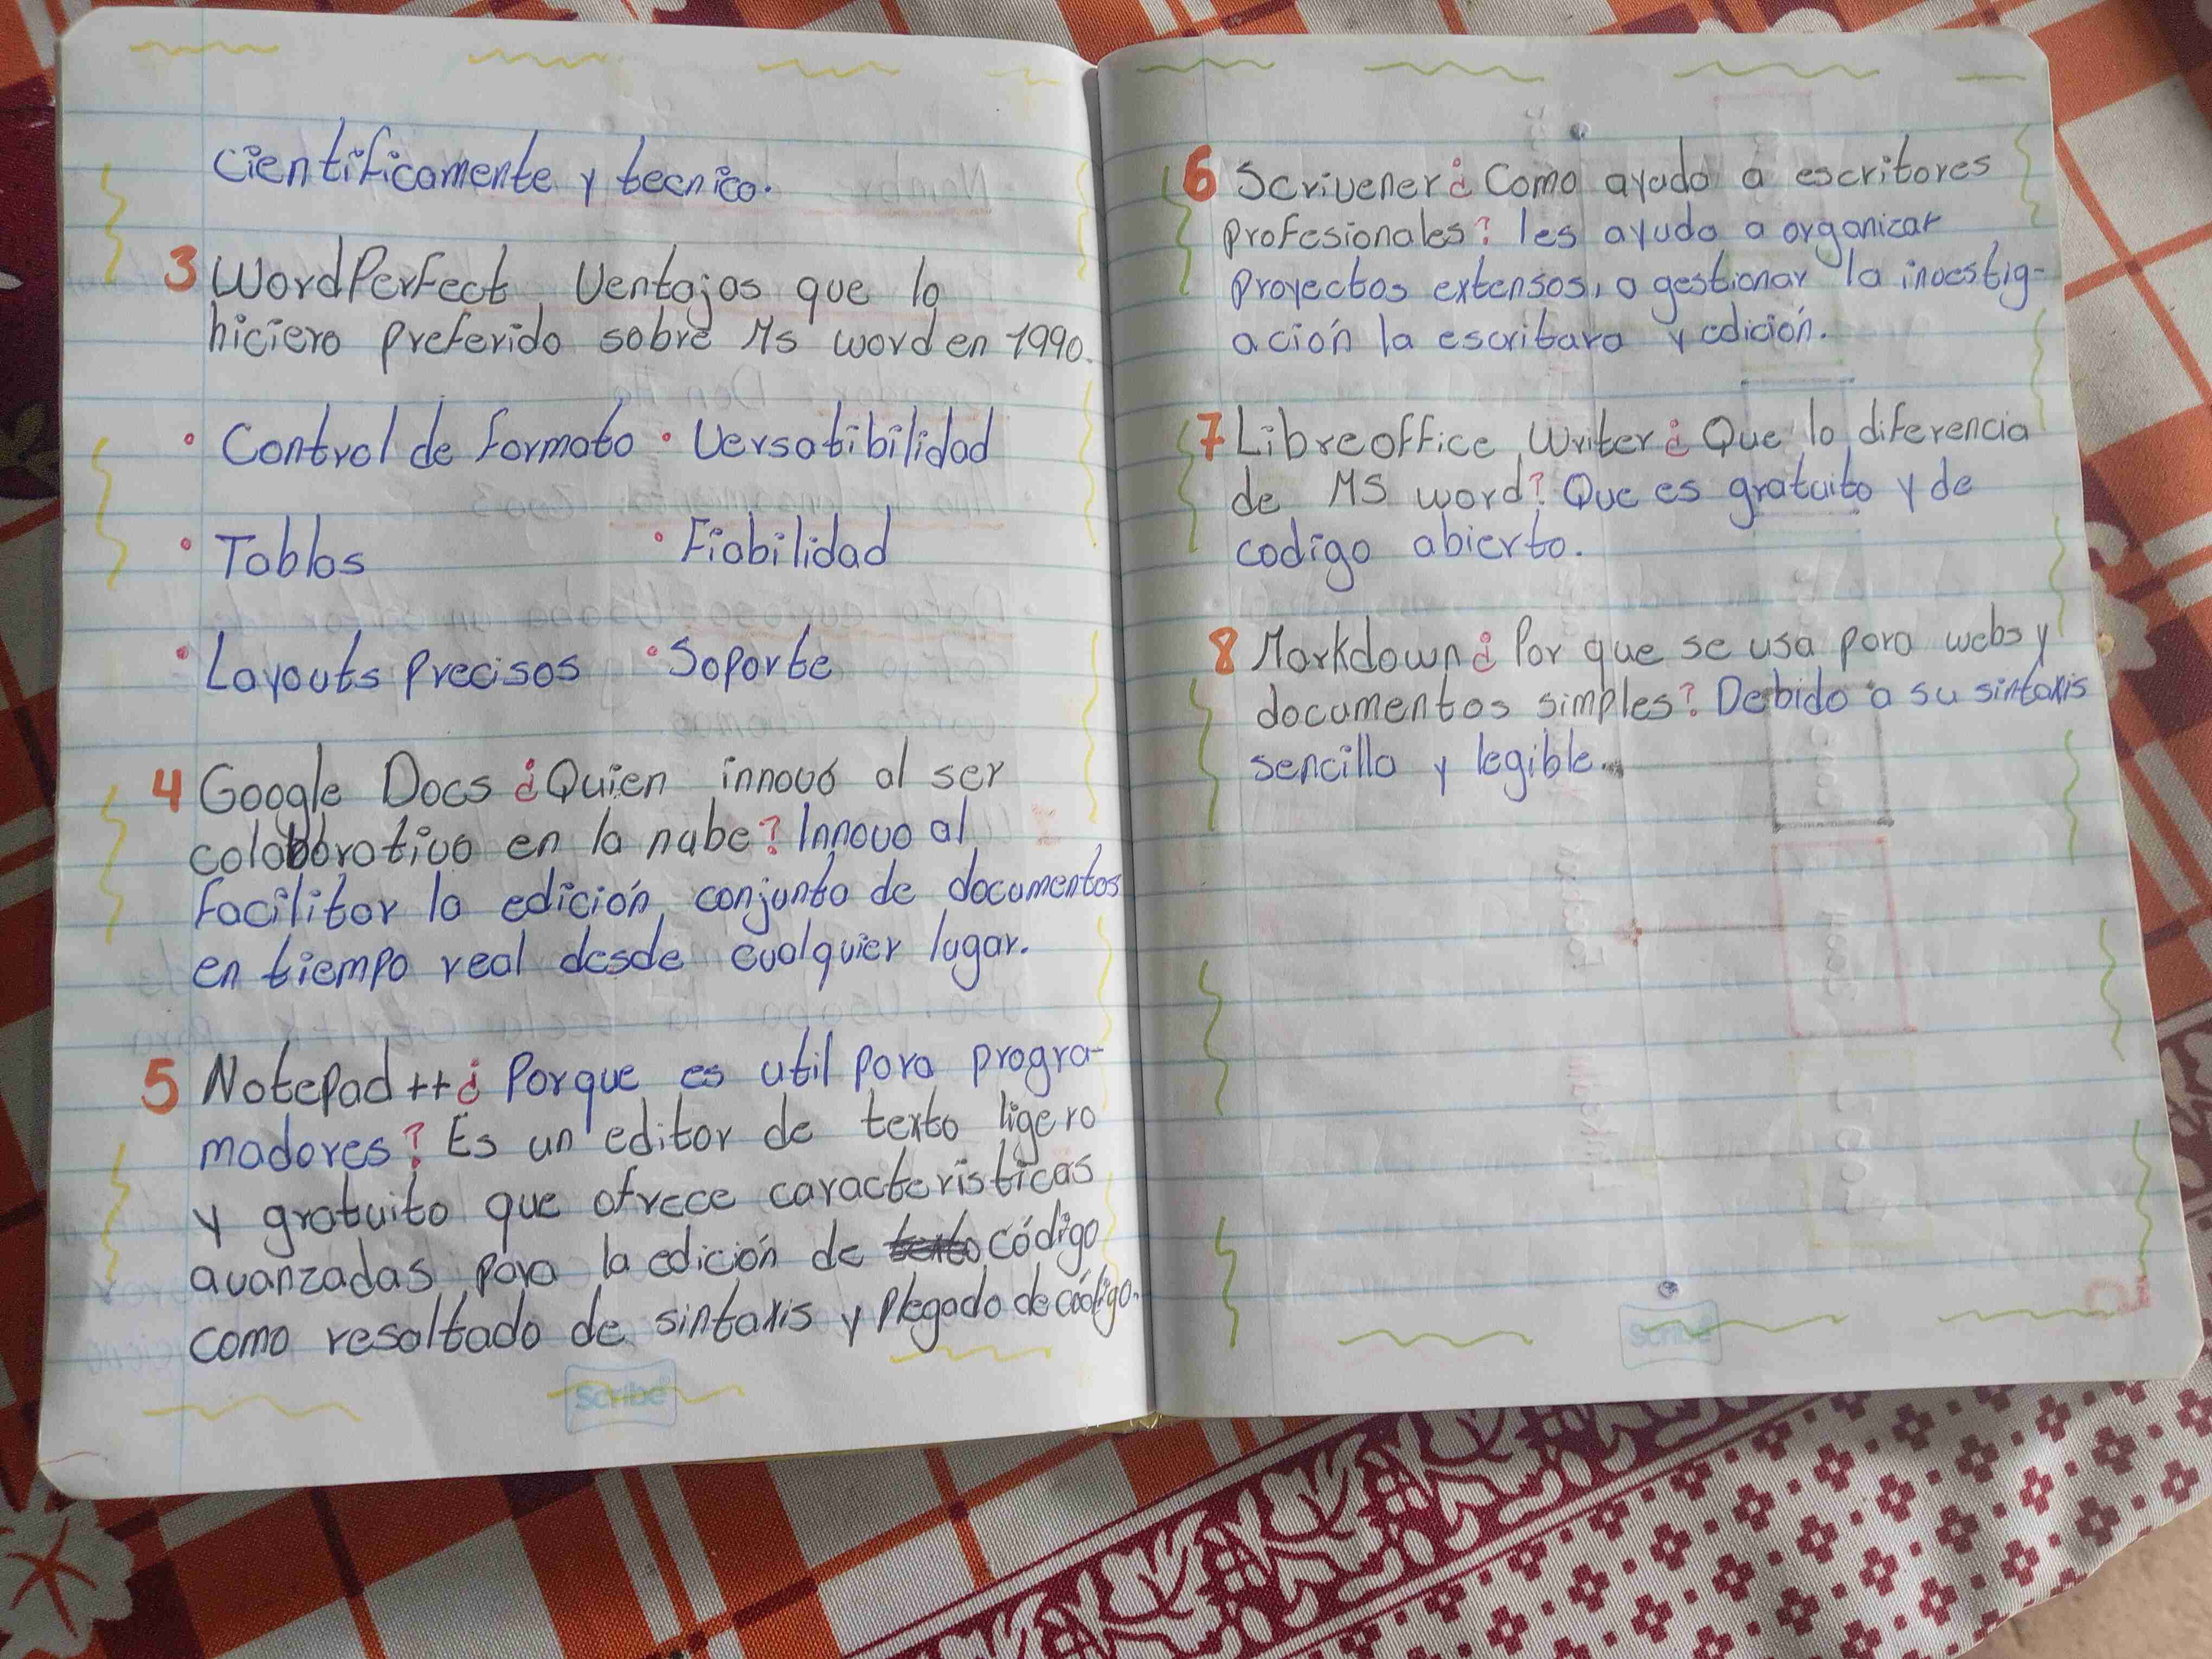 cientificamente y tecnico.
3 WordPerfect Ventajas que lo
hiciero preferido sobre Ms word en 1990.
• Control de formato • Versatibilidad
• Tablas • Fiabilidad
• Layouts Precisos • Soporte
4 Google Docs ¿Quien innovó al ser
colabborativo en la nube? Innovo al
facilitar la edición conjunta de documentos
en tiempo real desde cualquier lugar.
5 Notepad++ ¿Porque es util para progra-
madores? Es un editor de texto ligero
y gratuito que ofrece caracteristicas
avanzadas para la edición de texto código
como resaltado de sintaxis y Plegado de código.
Scribe
6 Scrivener ¿Como ayuda a escritores
profesionales? les ayuda a organizar
proyectos extensos, a gestionar la investig-
ación la escritura y edición.
7 Libreoffice Writer ¿Que lo diferencia
de MS word? Que es gratuito y de
codigo abierto.
8 Markdown ¿Por que se usa para webs y
documentos simples? Debido a su sintaxis
sencilla y legible.
Scribe